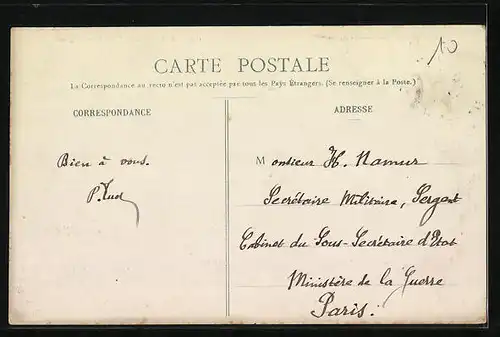 10
CARTE POSTALE
La Correspondance au recto n'est pas acceptée par tous les Pays Étrangers. (Se renseigner à la Poste.)
CORRESPONDANCE
ADRESSE
Bien à vous.
P.
Monsieur H. Namur
Secrétaire Militaire, Sergent
Cabinet du Sous-Secrétaire d'Etat
Ministère de la Guerre
Paris.